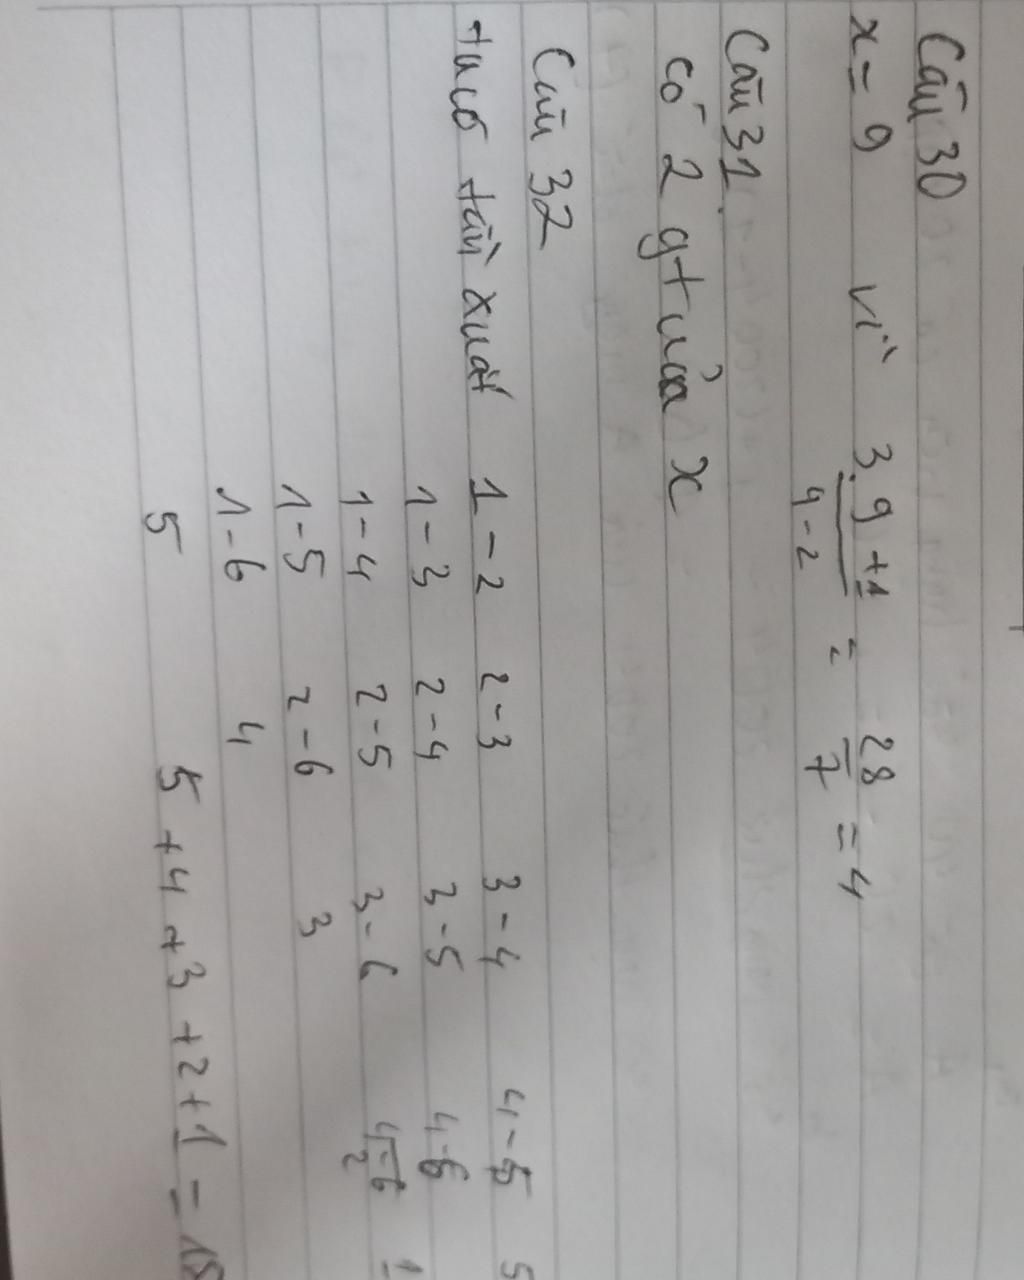 Câu 30
x = 9 vì 3.9+1 / 9-2 = 28 / 7 = 4
Câu 31
có 2 gt của x
Câu 32
ta có tần xuất 1-2 2-3 3-4 4-5 5
1-3 2-4 3-5 4-6
1-4 2-5 3-6 4-6 1
2
1-5 2-6 3
1-6 4
5 5+4+3+2+1=15